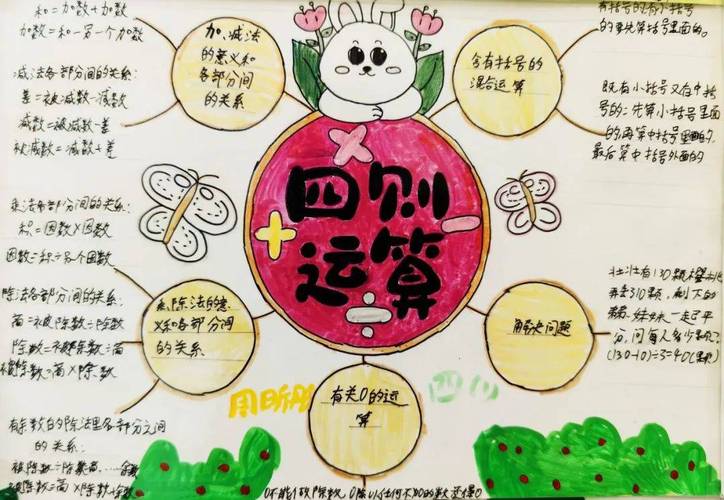 和=加数+加数
加数=和-另一个加数
减法各部分间的关系:
差=被减数-减数
减数=被减数-差
被减数=减数+差
乘法各部分间的关系:
积=因数×因数
因数=积÷另个因数
除法各部分间的关系:
商=被除数÷除数
除数=被除数÷商
被除数=商×除数
有余数的除法里各部分之间
的关系:
被除数÷除数=商……余数
被除数=商×除数+余数
加、减法
的意义和
各部分间
的关系
乘、除法的意
义和各部分间
的关系
四则
运算
有关0的运
算
0不能作除数,0除以任何不为0的数还得0
含有括号的
混合运算
有括号的有小括号
的要先算括号里面的。
既有小括号又有中括
号的:先算小括号里面
的,再算中括号里面的.
最后算中括号外面的
解决问题
壮壮有130颗
弄丢310颗,剩下的
妹妹一起平
分,问每人多少颗?
(130-10)÷3=40(颗)
四(